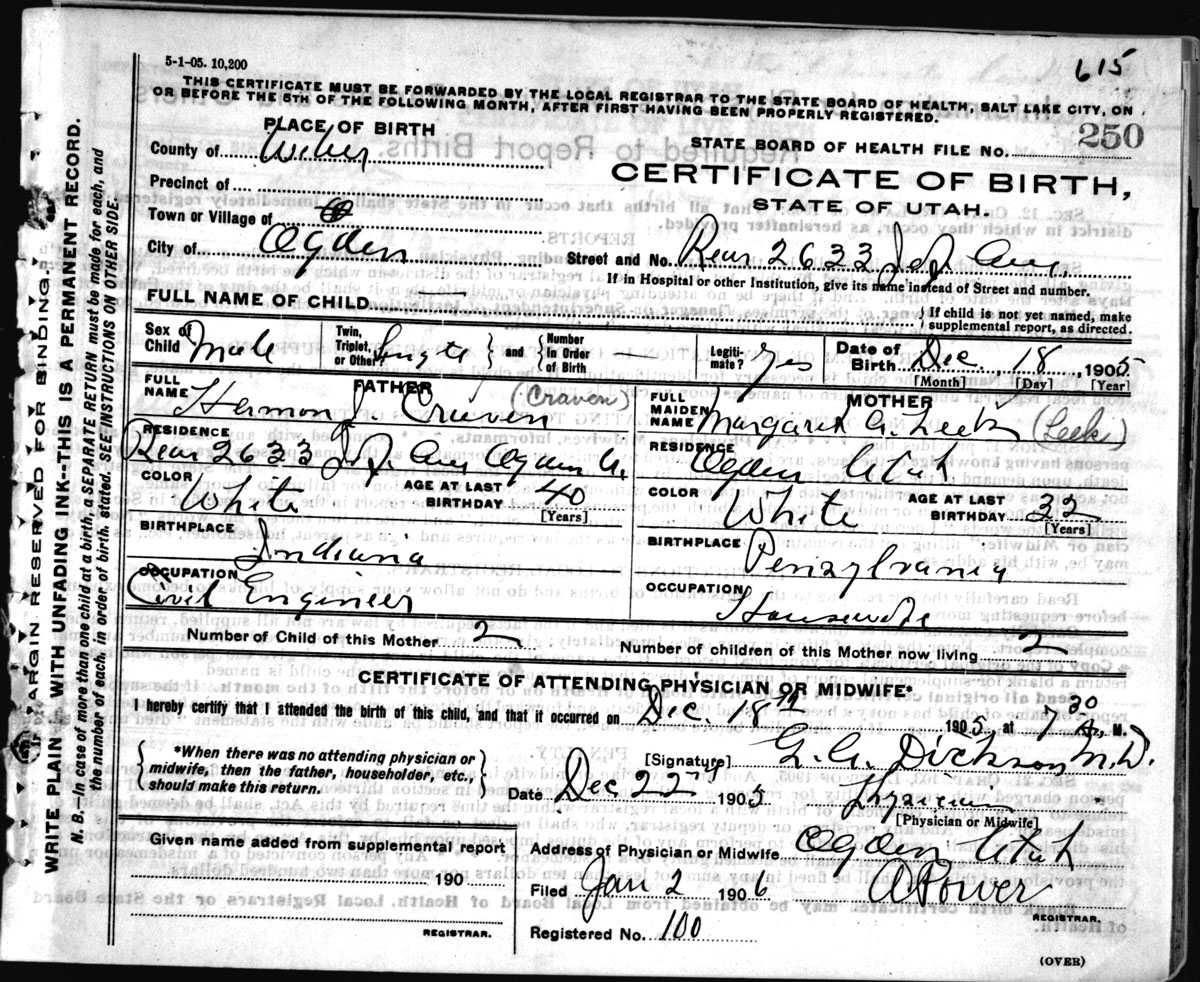 5-1-05. 10,200
615
THIS CERTIFICATE MUST BE FORWARDED BY THE LOCAL REGISTRAR TO THE STATE BOARD OF HEALTH, SALT LAKE CITY, ON
OR BEFORE THE 5TH OF THE FOLLOWING MONTH, AFTER FIRST HAVING BEEN PROPERLY REGISTERED.
PLACE OF BIRTH
STATE BOARD OF HEALTH FILE NO. 250
County of Weber
CERTIFICATE OF BIRTH,
Precinct of
STATE OF UTAH.
Town or Village of
City of Ogden
Street and No. Rear 2633 Jef. Ave.
If in Hospital or other Institution, give its name instead of Street and number.
FULL NAME OF CHILD
If child is not yet named, make
supplemental report, as directed.
Sex of Child Male
Twin, Triplet, or Other?
and
Number In Order of Birth
Legiti-mate? Yes
Date of Birth Dec 18, 1905
[Month] [Day] [Year]
FATHER
FULL NAME Hermon J. Cruven (Craven)
RESIDENCE
Rear 2633 Jef. Ave Ogden U.
COLOR White
AGE AT LAST BIRTHDAY 40
[Years]
BIRTHPLACE
Indiana
OCCUPATION
Civil Engineer
MOTHER
FULL MAIDEN NAME Margaret A. Leek (Leek)
RESIDENCE Ogden Utah
COLOR White
AGE AT LAST BIRTHDAY 32
[Years]
BIRTHPLACE Penzylvania
OCCUPATION
Housewife
Number of Child of this Mother 2
Number of children of this Mother now living 2
CERTIFICATE OF ATTENDING PHYSICIAN OR MIDWIFE*
I hereby certify that I attended the birth of this child, and that it occurred on Dec. 18th
1905, at 7 30 A., M.
*When there was no attending physician or
midwife, then the father, householder, etc.,
should make this return.
[Signature] G. A. Dickson M.D.
Date Dec 22nd 1905
Physician
[Physician or Midwife]
Given name added from supplemental report
190
REGISTRAR.
Address of Physician or Midwife Ogden Utah
Filed Jan 2 1906
A Power
REGISTRAR.
Registered No. 100
(OVER)
MARGIN RESERVED FOR BINDING.
WRITE PLAIN WITH UNFADING INK--THIS IS A PERMANENT RECORD.
N. B.—In case of more than one child at a birth, a SEPARATE RETURN must be made for each, and
the number of each, in order of birth, stated. SEE INSTRUCTIONS ON OTHER SIDE.